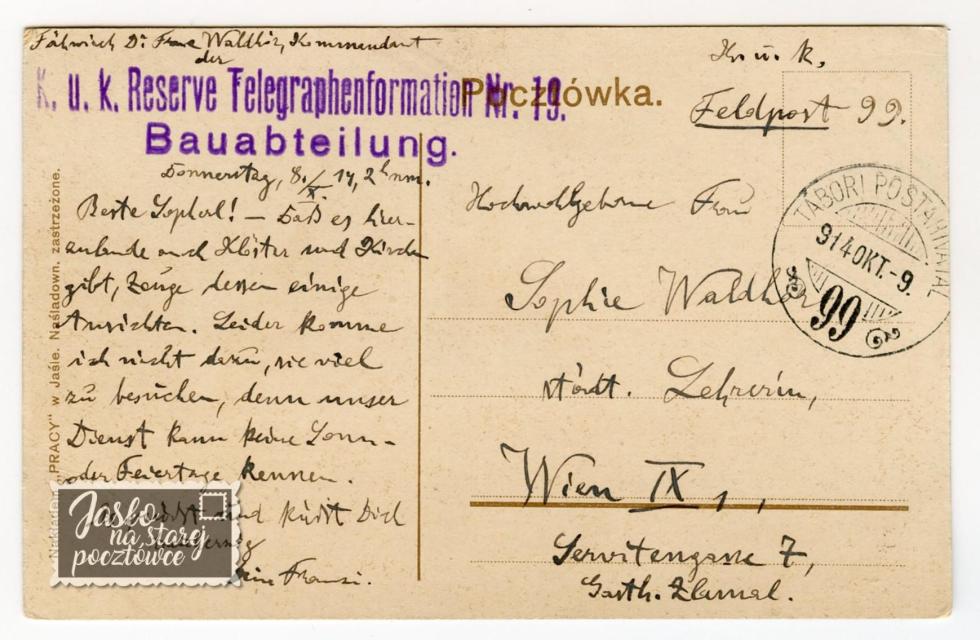 Fähnrich Dr. Franz Waldhör, Kommandant
der
K. u. k. Reserve Telegraphenformation Nr. 19.
Bauabteilung.
Donnerstag, 8./X. 14, 2h nm.
Beste Sopherl! — Daß es hier-
zulande auch Klöster und Kirchen
gibt, Zeuge dessen einige
Ansichten. Leider komme
ich nicht dazu, sie viel
zu besuchen, denn unser
Dienst kann keine Sonn-
oder Feiertage kennen.
und küßt Dich
Franzi.
Nakładem „PRACY" w Jaśle. Naśladown. zastrzeżone.
Jasło
na starej
pocztówce
Pocztówka.
K. u. k.
Feldpost 99.
TÁBORI POSTAHIVATAL
914 OKT. -9.
99
Hochwohlgeborne Frau
Sophie Waldhör
städt. Lehrerin,
Wien IX,
Servitengasse 7,
Garth. Zlamal.